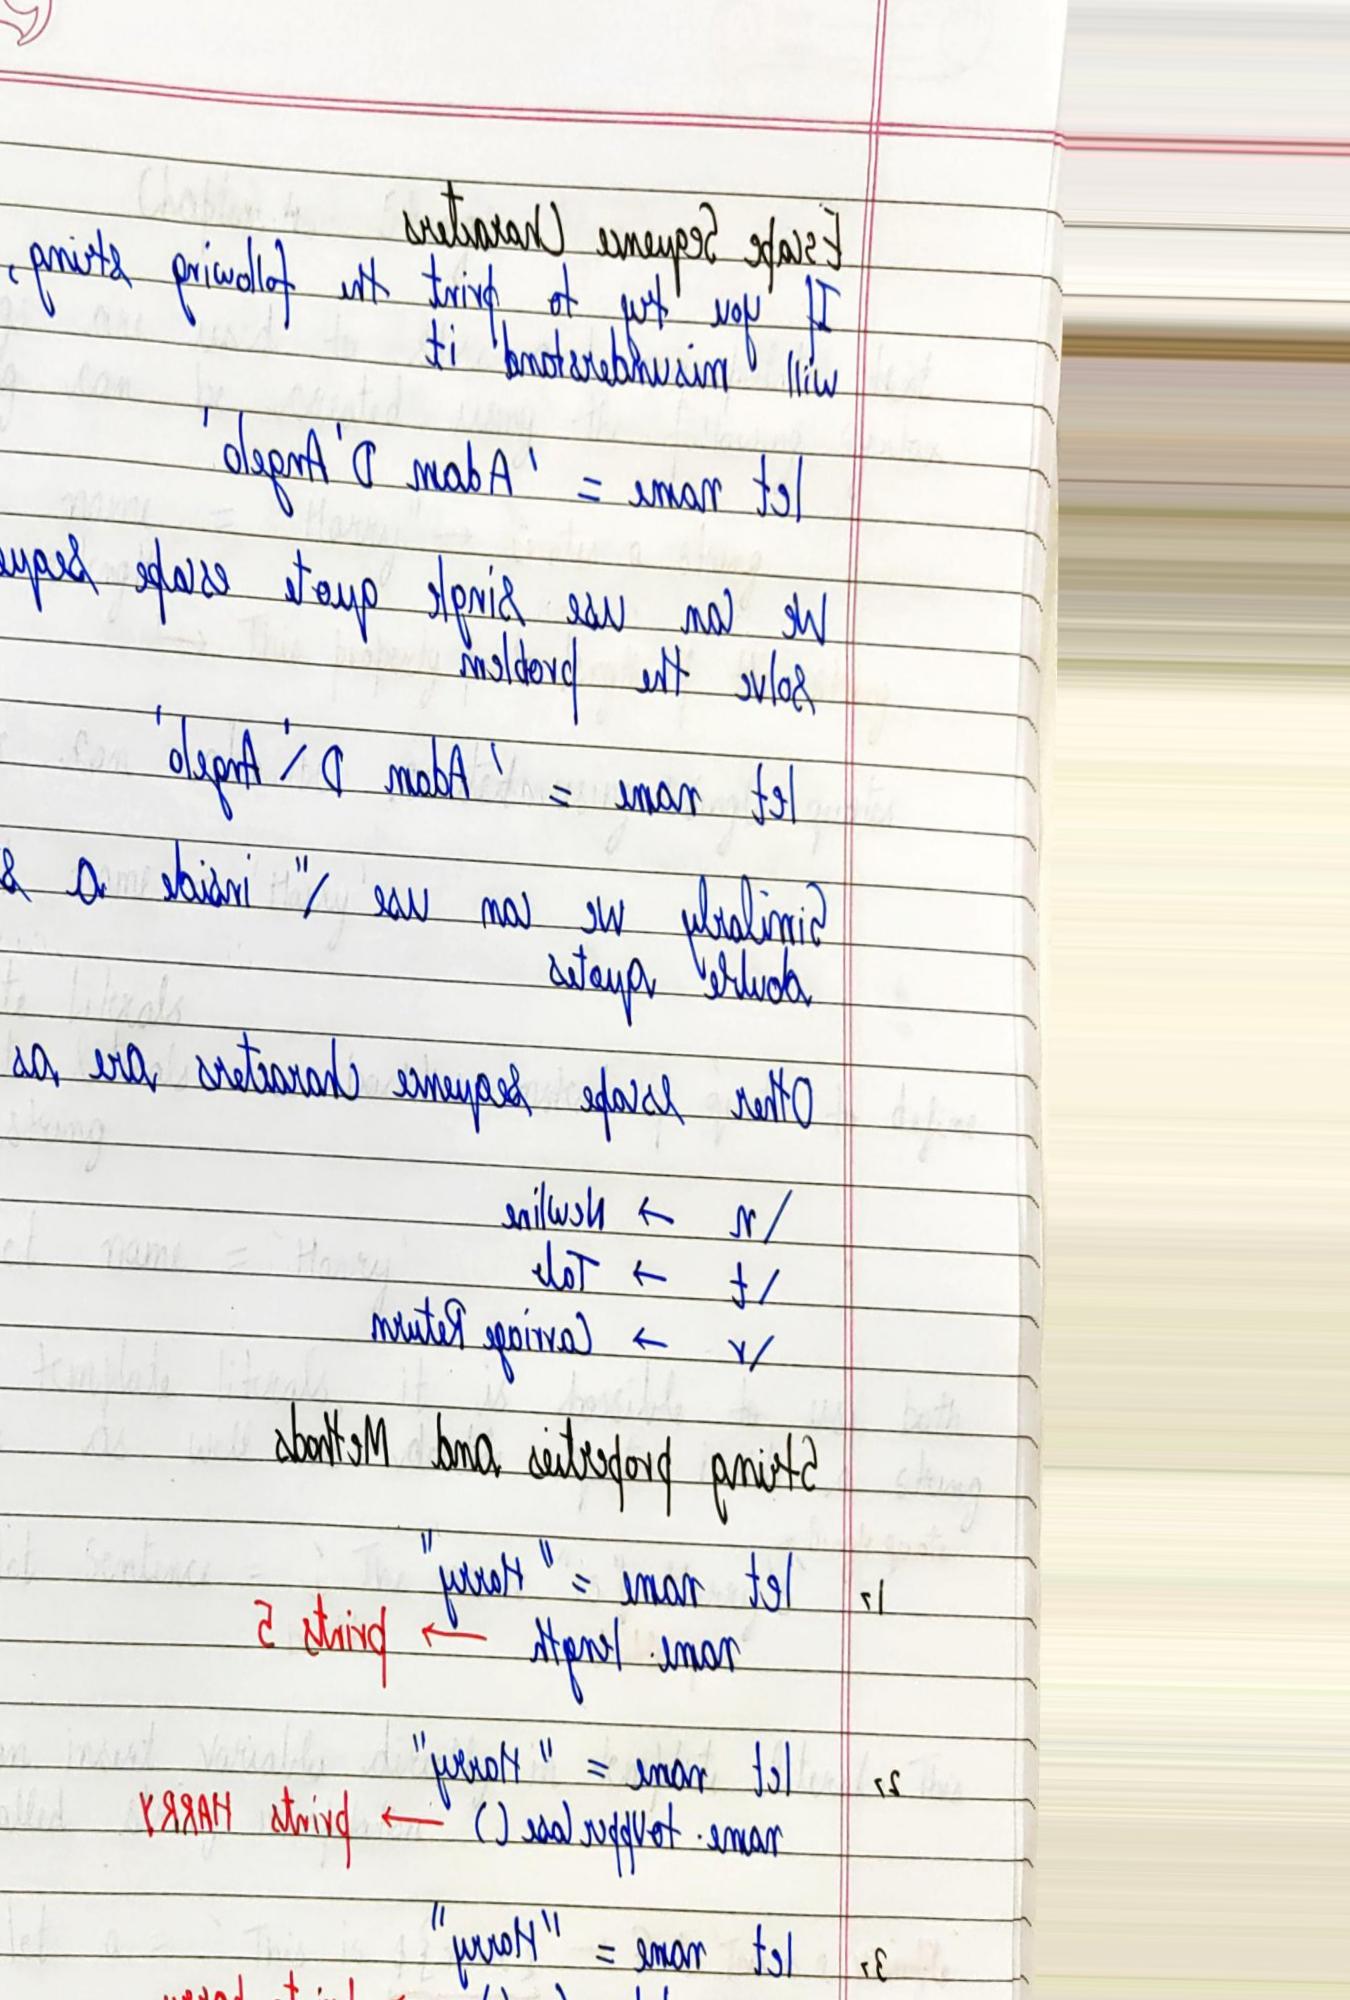 Escape Sequence Characters
If you try to print the following string,
will misunderstand it
let name = 'Adam D'Angelo'
We can use single quote escape seque
solve the problem
let name = 'Adam D\'Angelo'
Similarly we can use \" inside a s
double quotes
Other escape sequence characters are as
\n → Newline
\t → Tab
\r → Carriage Return
String properties and Methods
1, let name = "Harry"
name.length → prints 5
2, let name = "Harry"
name.toUpperCase() → prints HARRY
3, let name = "Harry"